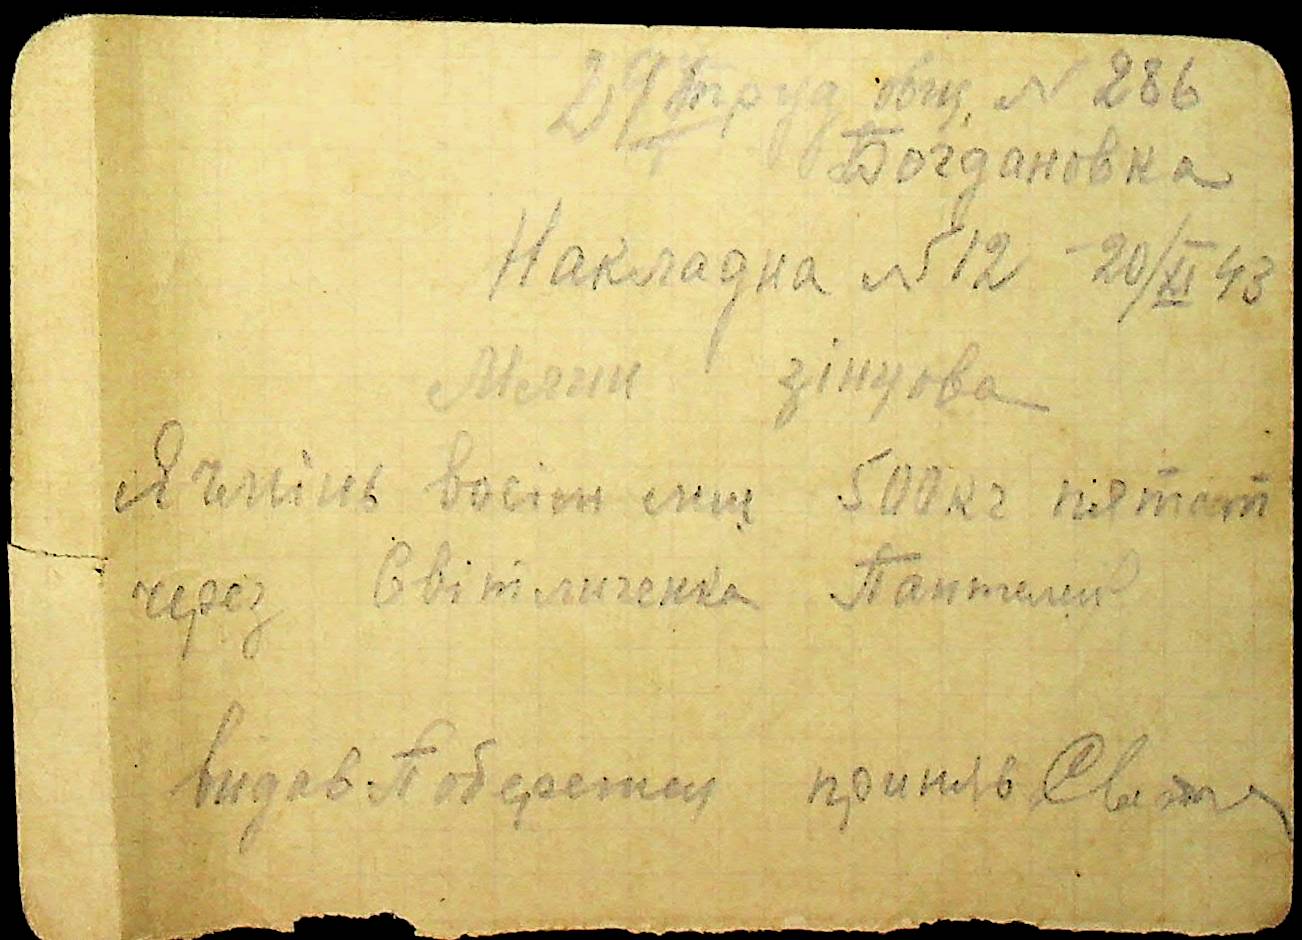 29 труд общ. № 286
Богдановка
Накладна № 12 - 20/XI 43
Млин зінцова
Ячмінь восім мш 500 кг пятсот
через Світличенка Пантелей
видав Поберетец приняв